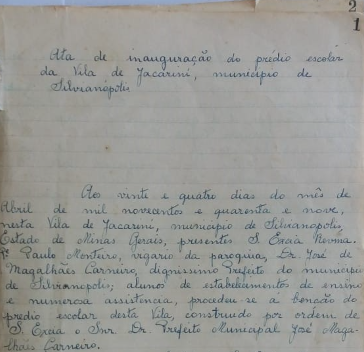 2
1
Ata de inauguração do prédio escolar
da Vila de Jacarini, municipio de
Silvianópolis
Aos vinte e quatro dias do mês de
Abril de mil novecentos e quarenta e nove,
nesta Vila de Jacarini, municipio de Silvianopolis
Estado de Minas Gerais, presentes S. Excia Revma.
Pe Paulo Monteiro, vigario da paroquia, Dr. José de
Magalhães Carneiro, dignissimo Prefeito do municipio
de Silvianopolis; alunos de estabelecimentos de ensino
e numerosa assistencia, procedeu-se a benção do
predio escolar desta Vila, construido por ordem de
S. Excia o Snr. Dr. Prefeito Municipal José Maga-
lhães Carneiro.